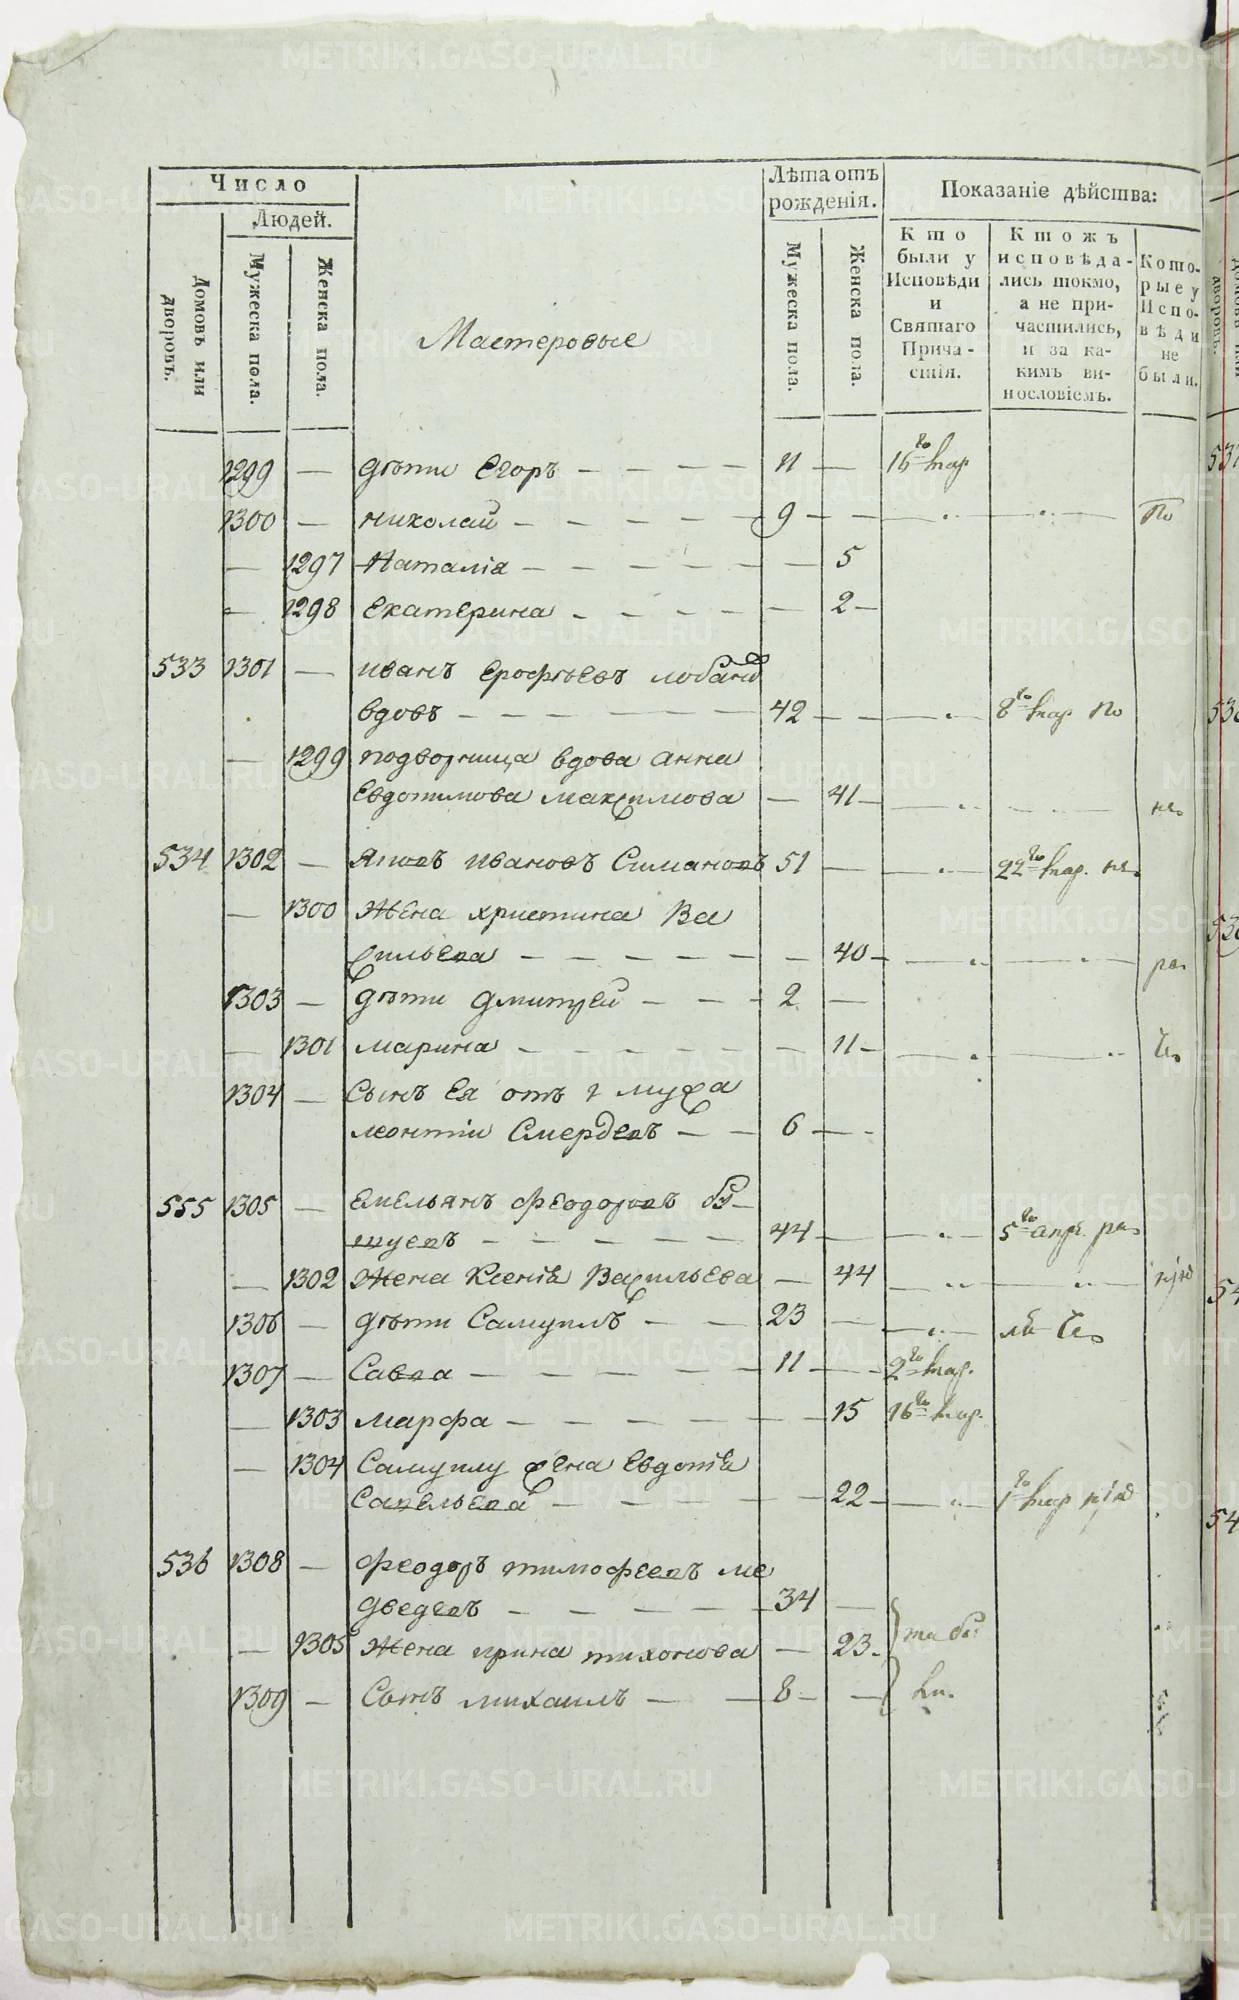 Число
Людей.
Домовъ или дворовъ.
Мужеска пола.
Женска пола.
Мастеровые
Лѣта отъ рожденія.
Мужеска пола.
Женска пола.
Показаніе дѣйства:
Кто были у Исповѣди и Святаго Причастія.
Ктожъ исповѣдались токмо, а не причастились, и за какимъ винословіемъ.
Которые у Исповѣди не были.
1299 — дѣти Егоръ — — — — 11 — 16го мар
1300 — николай — — — — — 9 — — по
— 1297 Наталія — — — — — — 5
— 1298 Екатерина — — — — — 2 —
533 1301 — иванъ Ерофѣевъ
вдовъ — — — — — 42 — — 8го мар по
— 1299 подворница вдова анна
Евдокимова максимова — 41 —
534 1302 — ивановъ Симановъ 51 — 22го мар.
— 1300 жена христина Ва
сильева — — — — — — 40 —
1303 — дѣти дмитрей — — — 2 —
— 1301 марина — — — — — — 11 —
1304 — Сынъ Ея отъ 1 мужа
леонтіи — — 6 — —
555 1305 — емельянъ феодоровъ
— — — — — 44 — 5го апр.
— 1302 жена Ксенія Васильева — 44
1306 — дѣти Самуилъ — — 23 —
1307 — Савва — — — — — 11 — — 2го мар.
— 1303 марфа — — — — — — 15 16го мар.
— 1304 Самуилу жена Евдотія
Савельева — — — — — 22 — 1го мар
536 1308 — феодоръ тимофеевъ ме
дведевъ — — — — — 34 —
— 1305 жена ирина тихонова — 23.
1309 — Сынъ михаилъ — — 8 — —
METRIKI.GASO-URAL.RU